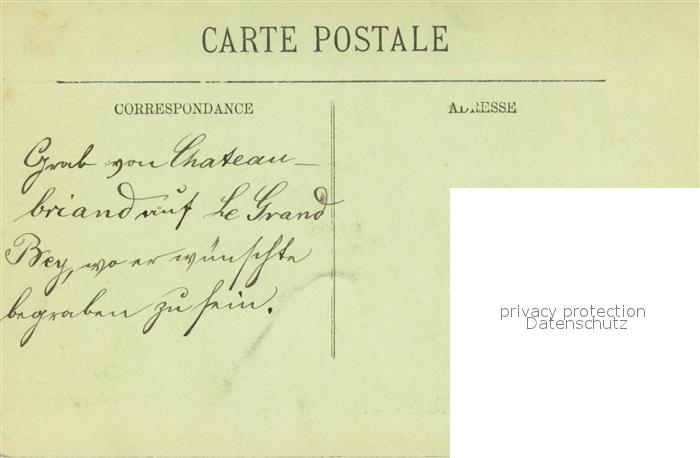 CARTE POSTALE
CORRESPONDANCE
ADRESSE
Grab von Chateau-
briand auf Le Grand
Bey, wo er wünschte
begraben zu sein.
privacy protection
Datenschutz